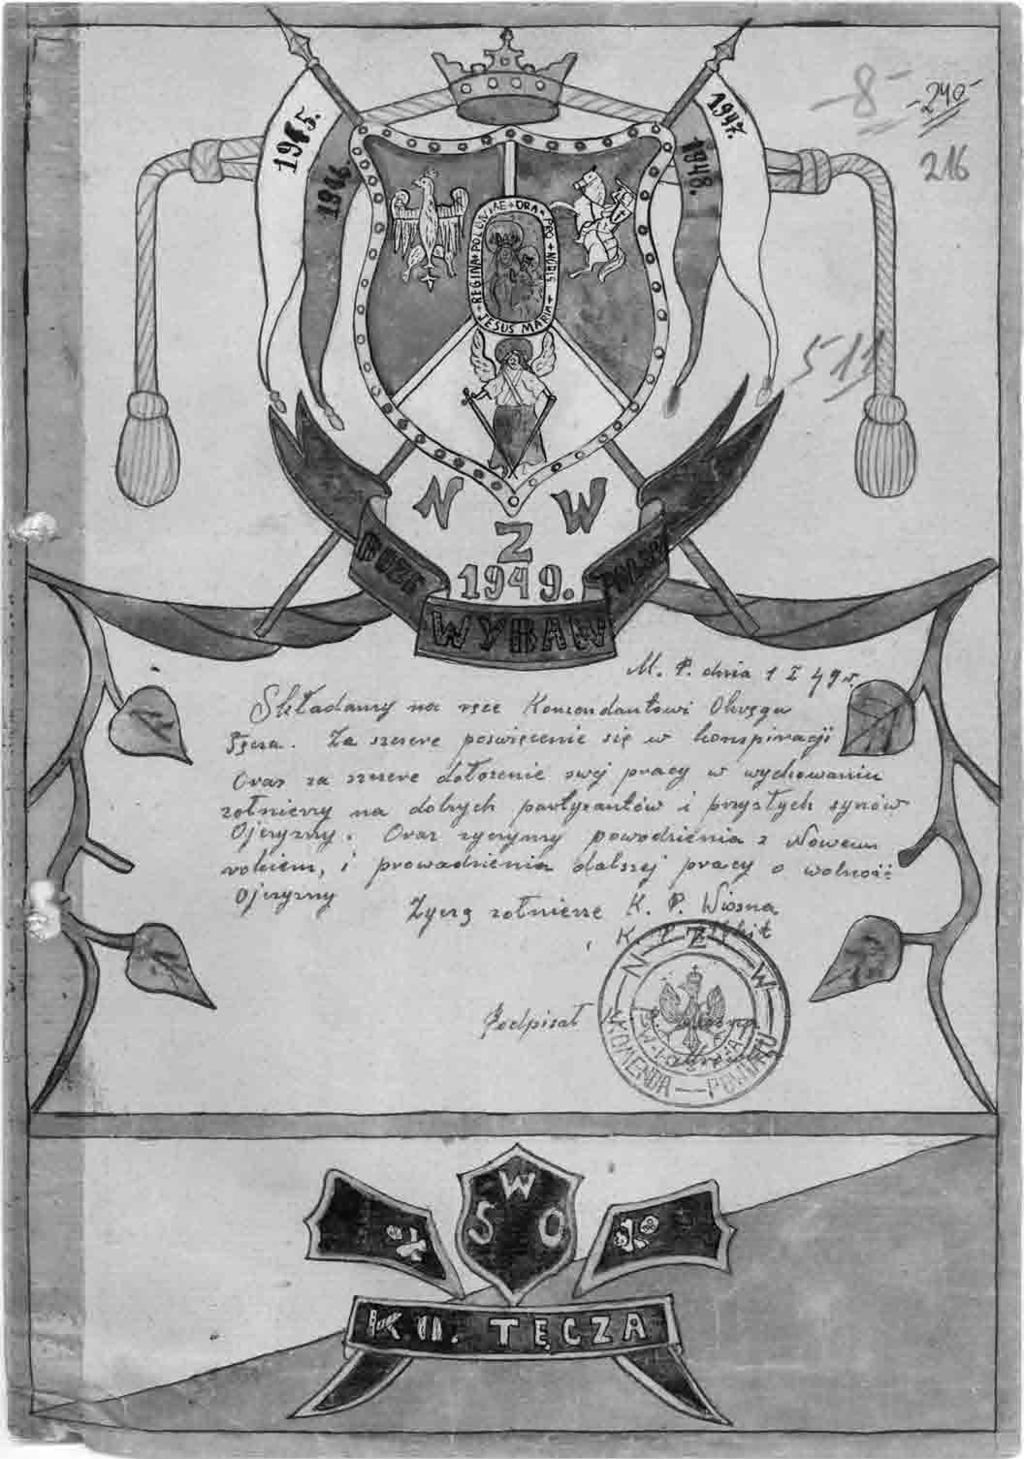 -8-
-240-
216
511
1945.
1946.
1947.
1948.
+ REGINA + POLONIAE + ORA + PRO + NOBIS +
JESUS MARIA
N Z W
1949.
BOŻE WYBAW POLSKĘ
M. P. dnia 1 I 49 r.
Składamy na ręce Komendantowi Okręgu
Tęcza. Za szczere poświęcenie się w konspiracji
Oraz za szczere dołożenie swej pracy w wychowaniu
żołnierzy na dobrych partyzantów i przyszłych synów
Ojczyzny. Oraz życzymy powodzienia z Nowem
rokiem, i prowadzienia dalszej pracy o wolność
Ojczyzny
Życzą żołnierze K. P. Wiosna
K. P.
Podpisał K.
N Z W
KOMENDA — POWIATU
W
S O
K. O. TĘCZA